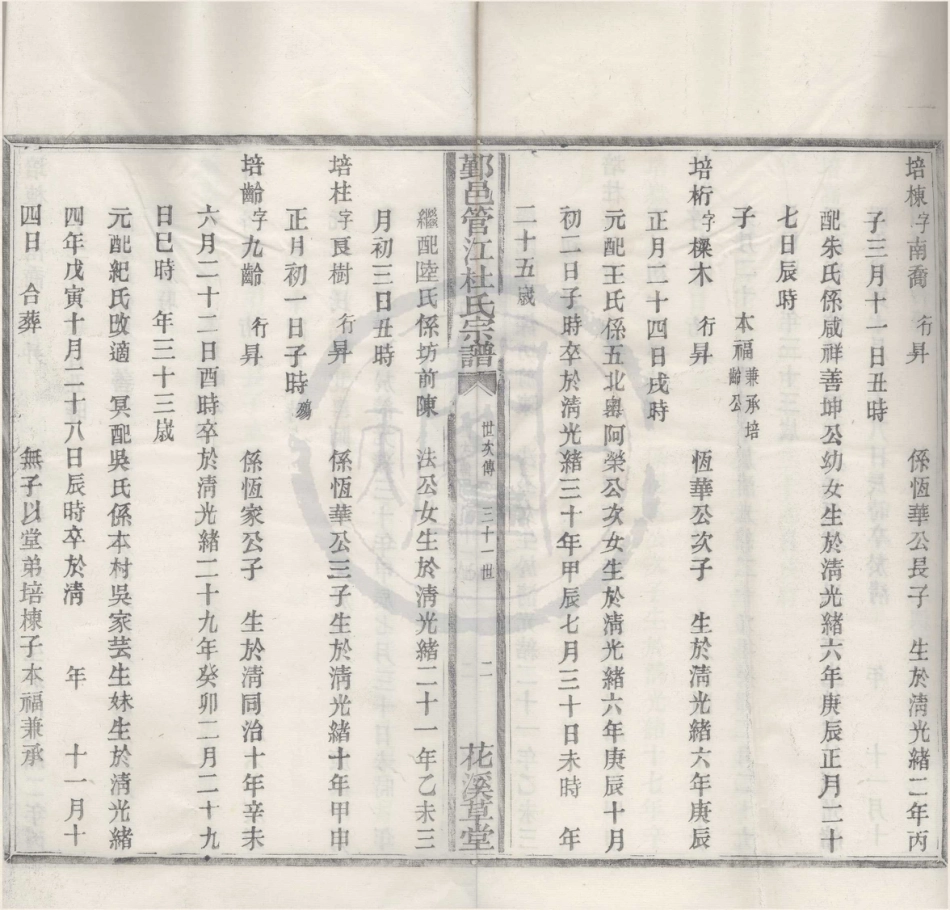 培棟字南喬 行昇 係恆華公長子 生於清光緒二年丙
子三月十一日丑時
配朱氏係咸祥善坤公幼女生於清光緒六年庚辰正月二十
七日辰時
子 本福兼承培齡公
培桁字樑木 行昇 係恆華公次子 生於清光緒六年庚辰
正月二十四日戌時
元配王氏係五北嶴阿榮公次女生於清光緒六年庚辰十月
初二日子時卒於清光緒三十年甲辰七月三十日未時 年
二十五歲
鄞邑管江杜氏宗譜 世次傳 三十一世 二 花溪草堂
繼配陸氏係坊前陳 法公女生於清光緒二十一年乙未三
月初三日丑時
培柱字良樹 行昇 係恆華公三子生於清光緒十年甲申
正月初一日子時
培齡字九齡 行昇 係恆家公子 生於清同治十年辛未
六月二十二日酉時卒於清光緒二十九年癸卯二月二十九
日巳時 年三十三歲
元配紀氏改適 冥配吳氏係本村吳家芸生妹生於清光緒
四年戊寅十月二十八日辰時卒於清 年 十一月十
四日 合葬 無子以堂弟培棟子本福兼承